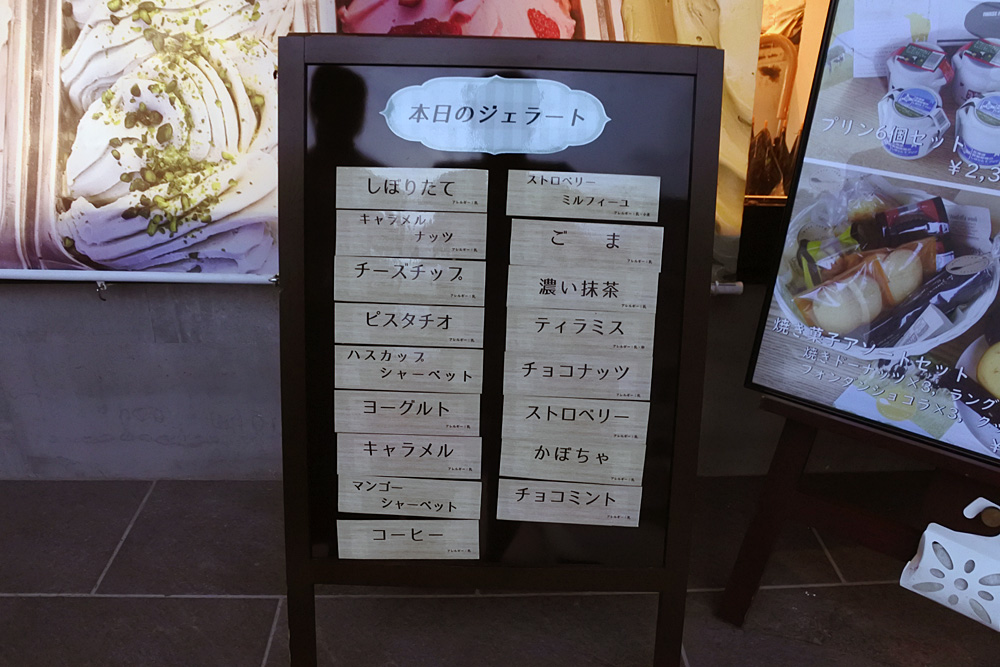 本日のジェラート
しぼりたて
アレルギー：乳
キャラメル
ナッツ
アレルギー：乳
チーズチップ
アレルギー：乳
ピスタチオ
アレルギー：乳
ハスカップ
シャーベット
ヨーグルト
アレルギー：乳
キャラメル
アレルギー：乳
マンゴー
シャーベット
コーヒー
アレルギー：乳
ストロベリー
ミルフィーユ
ごま
アレルギー：乳
濃い抹茶
アレルギー：乳
ティラミス
チョコナッツ
アレルギー：乳
ストロベリー
アレルギー：乳
かぼちゃ
アレルギー：乳
チョコミント
アレルギー：乳
プリン6個セット
¥2,3
焼き菓子アソートセット
焼きドーナッツ×3, ラング
フォンダンショコラ×3, クッ
¥